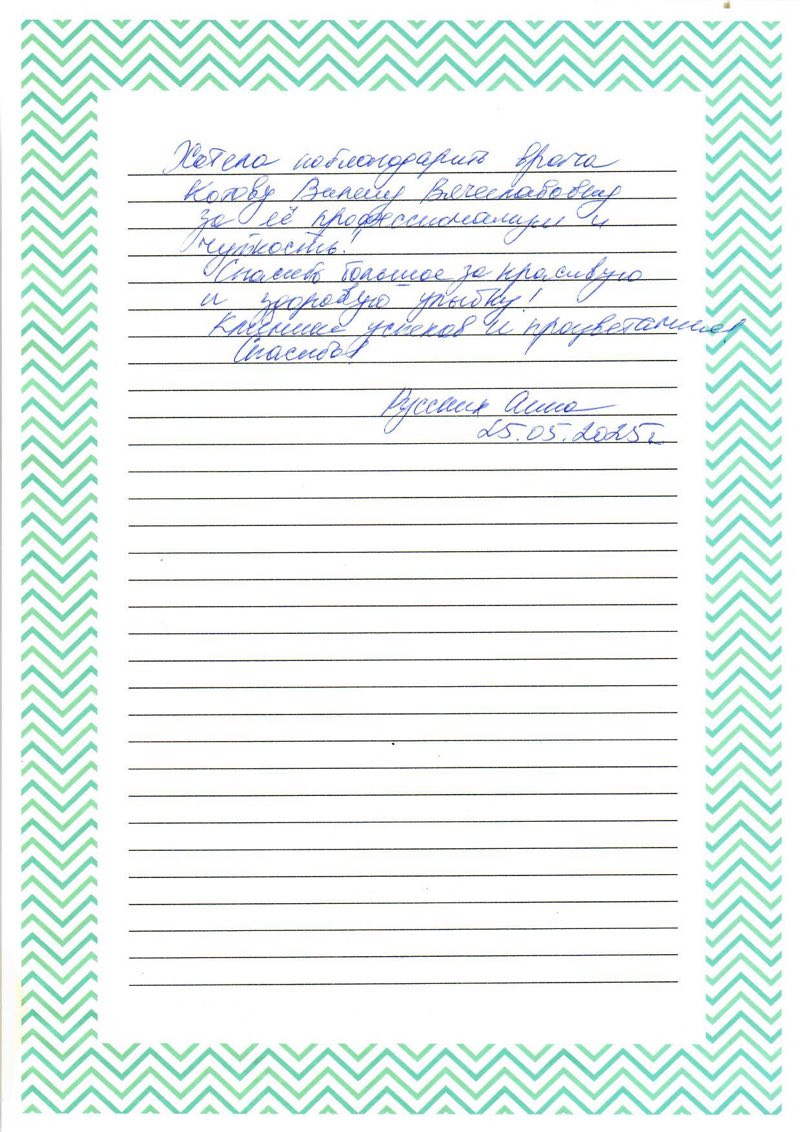 Хотела поблагодарить врача
Котову Вячеславовну
за её профессионализм и
чуткость!
Спасибо большое за красивую
и здоровую улыбку!
Клинике успехов и процветания!
Спасибо!
Русских Анна
25.05.2025г.